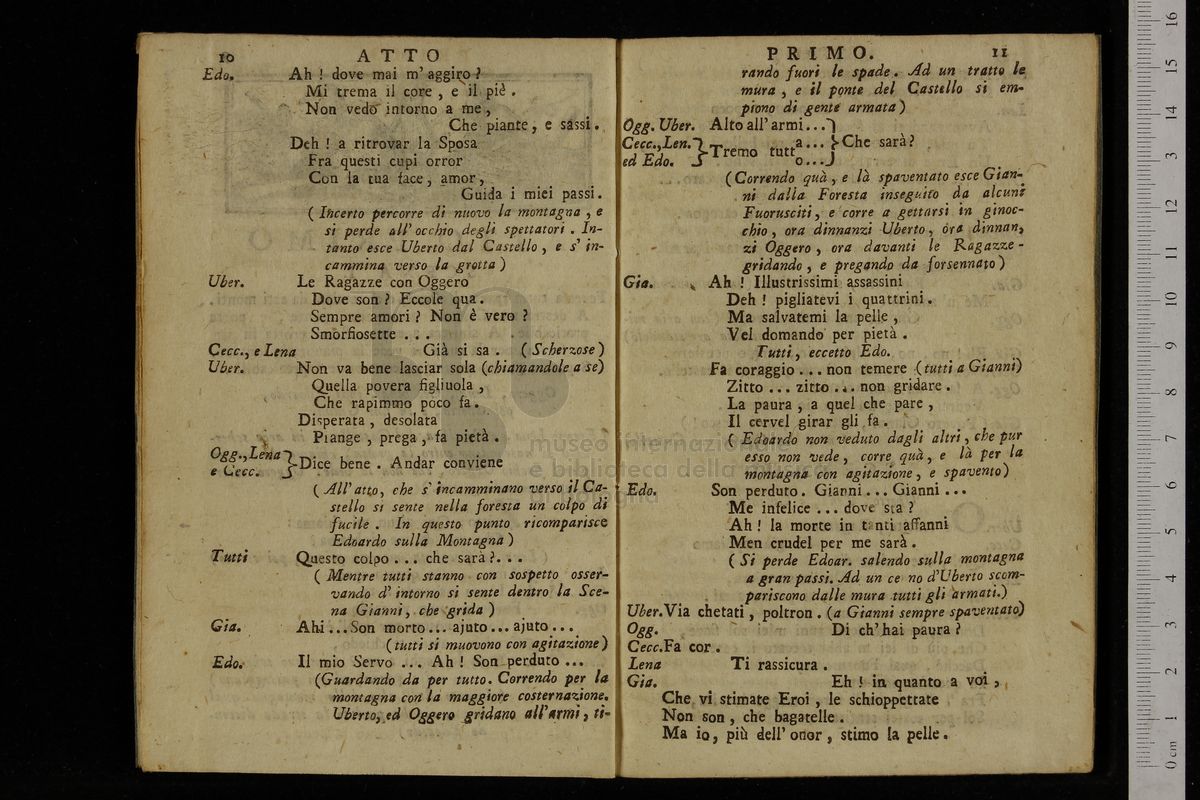 10 ATTO
Edo. Ah ! dove mai m' aggiro ?
Mi trema il core , e il piè .
Non vedo intorno a me ,
Che piante , e sassi .
Deh ! a ritrovar la Sposa
Fra questi cupi orror
Con la tua face , amor ,
Guida i miei passi .
( Incerto percorre di nuovo la montagna , e
si perde all' occhio degli spettatori . In-
tanto esce Uberto dal Castello , e s' in-
cammina verso la grotta )
Uber. Le Ragazze con Oggero
Dove son ? Eccole qua .
Sempre amori ? Non è vero ?
Smorfiosette . . .
Cecc., e Lena Già si sa . ( Scherzose )
Uber. Non va bene lasciar sola (chiamandole a se)
Quella povera figliuola ,
Che rapimmo poco fa .
Disperata , desolata
Piange , prega , fa pietà .
Ogg., Lena
e Cecc. } Dice bene . Andar conviene
( All' atto, che s' incamminano verso il Ca-
stello si sente nella foresta un colpo di
fucile . In questo punto ricomparisce
Edoardo sulla Montagna )
Tutti Questo colpo . . . che sarà ? . . .
( Mentre tutti stanno con sospetto osser-
vando d' intorno si sente dentro la Sce-
na Gianni , che grida )
Gia. Ahi ... Son morto ... ajuto ... ajuto ...
( tutti si muovono con agitazione )
Edo. Il mio Servo ... Ah ! Son perduto ...
(Guardando da per tutto. Correndo per la
montagna con la maggiore costernazione.
Uberto, ed Oggero gridano all'armi, ti-
PRIMO. 11
rando fuori le spade . Ad un tratto le
mura , e il ponte del Castello si em-
piono di gente armata )
Ogg. Uber. Alto all' armi ... }
Cecc., Len. } Tremo tutt a ... } Che sarà ?
ed Edo. o ... }
( Correndo quà , e là spaventato esce Gian-
ni dalla Foresta inseguito da alcuni
Fuorusciti , e corre a gettarsi in ginoc-
chio , ora dinnanzi Uberto , ora dinnan,
zi Oggero , ora davanti le Ragazze -
gridando , e pregando da forsennato )
Gia. Ah ! Illustrissimi assassini
Deh ! pigliatevi i quattrini .
Ma salvatemi la pelle ,
Vel domando per pietà .
Tutti , eccetto Edo.
Fa coraggio ... non temere ( tutti a Gianni)
Zitto ... zitto ... non gridare .
La paura , a quel che pare ,
Il cervel girar gli fa .
( Edoardo non veduto dagli altri , che pur
esso non vede , corre quà , e là per la
montagna con agitazione , e spavento )
Edo. Son perduto . Gianni ... Gianni ...
Me infelice ... dove sta ?
Ah ! la morte in tanti affanni
Men crudel per me sarà .
( Si perde Edoar. salendo sulla montagna
a gran passi. Ad un ce no d'Uberto scom-
pariscono dalle mura tutti gli armati.)
Uber. Via chetati , poltron . (a Gianni sempre spaventato)
Ogg. Di ch' hai paura ?
Cecc. Fa cor .
Lena Ti rassicura .
Gia. Eh ! in quanto a voi ,
Che vi stimate Eroi , le schioppettate
Non son , che bagatelle .
Ma io, più dell' onor , stimo la pelle .
museo internazionale
e biblioteca della musica
di bologna
0 cm 1 2 3 4 5 6 7 8 9 10 11 12 13 14 15 16